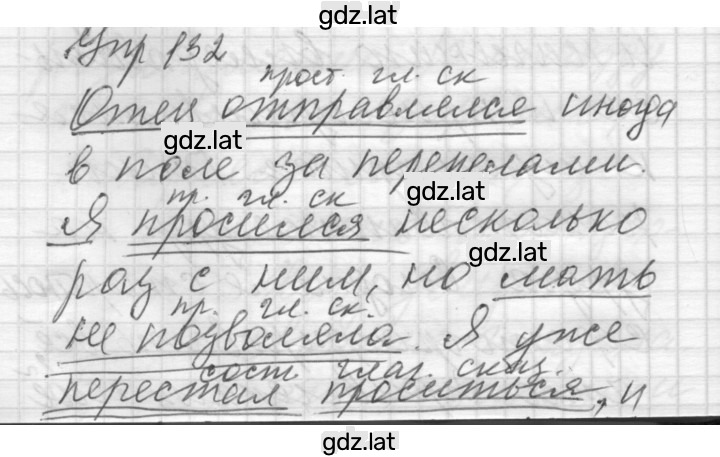 gdz.lat
Упр 132
прост. гл. ск
Отец отправлялся иногда
gdz.lat
в поле за перепелами.
gdz.lat
пр. гл. ск
Я просился несколько
gdz.lat
раз с ним, но мать
пр. гл. ск.
не позволяла. Я уже
сост глаг. сказ.
перестал проситься, и
gdz.lat